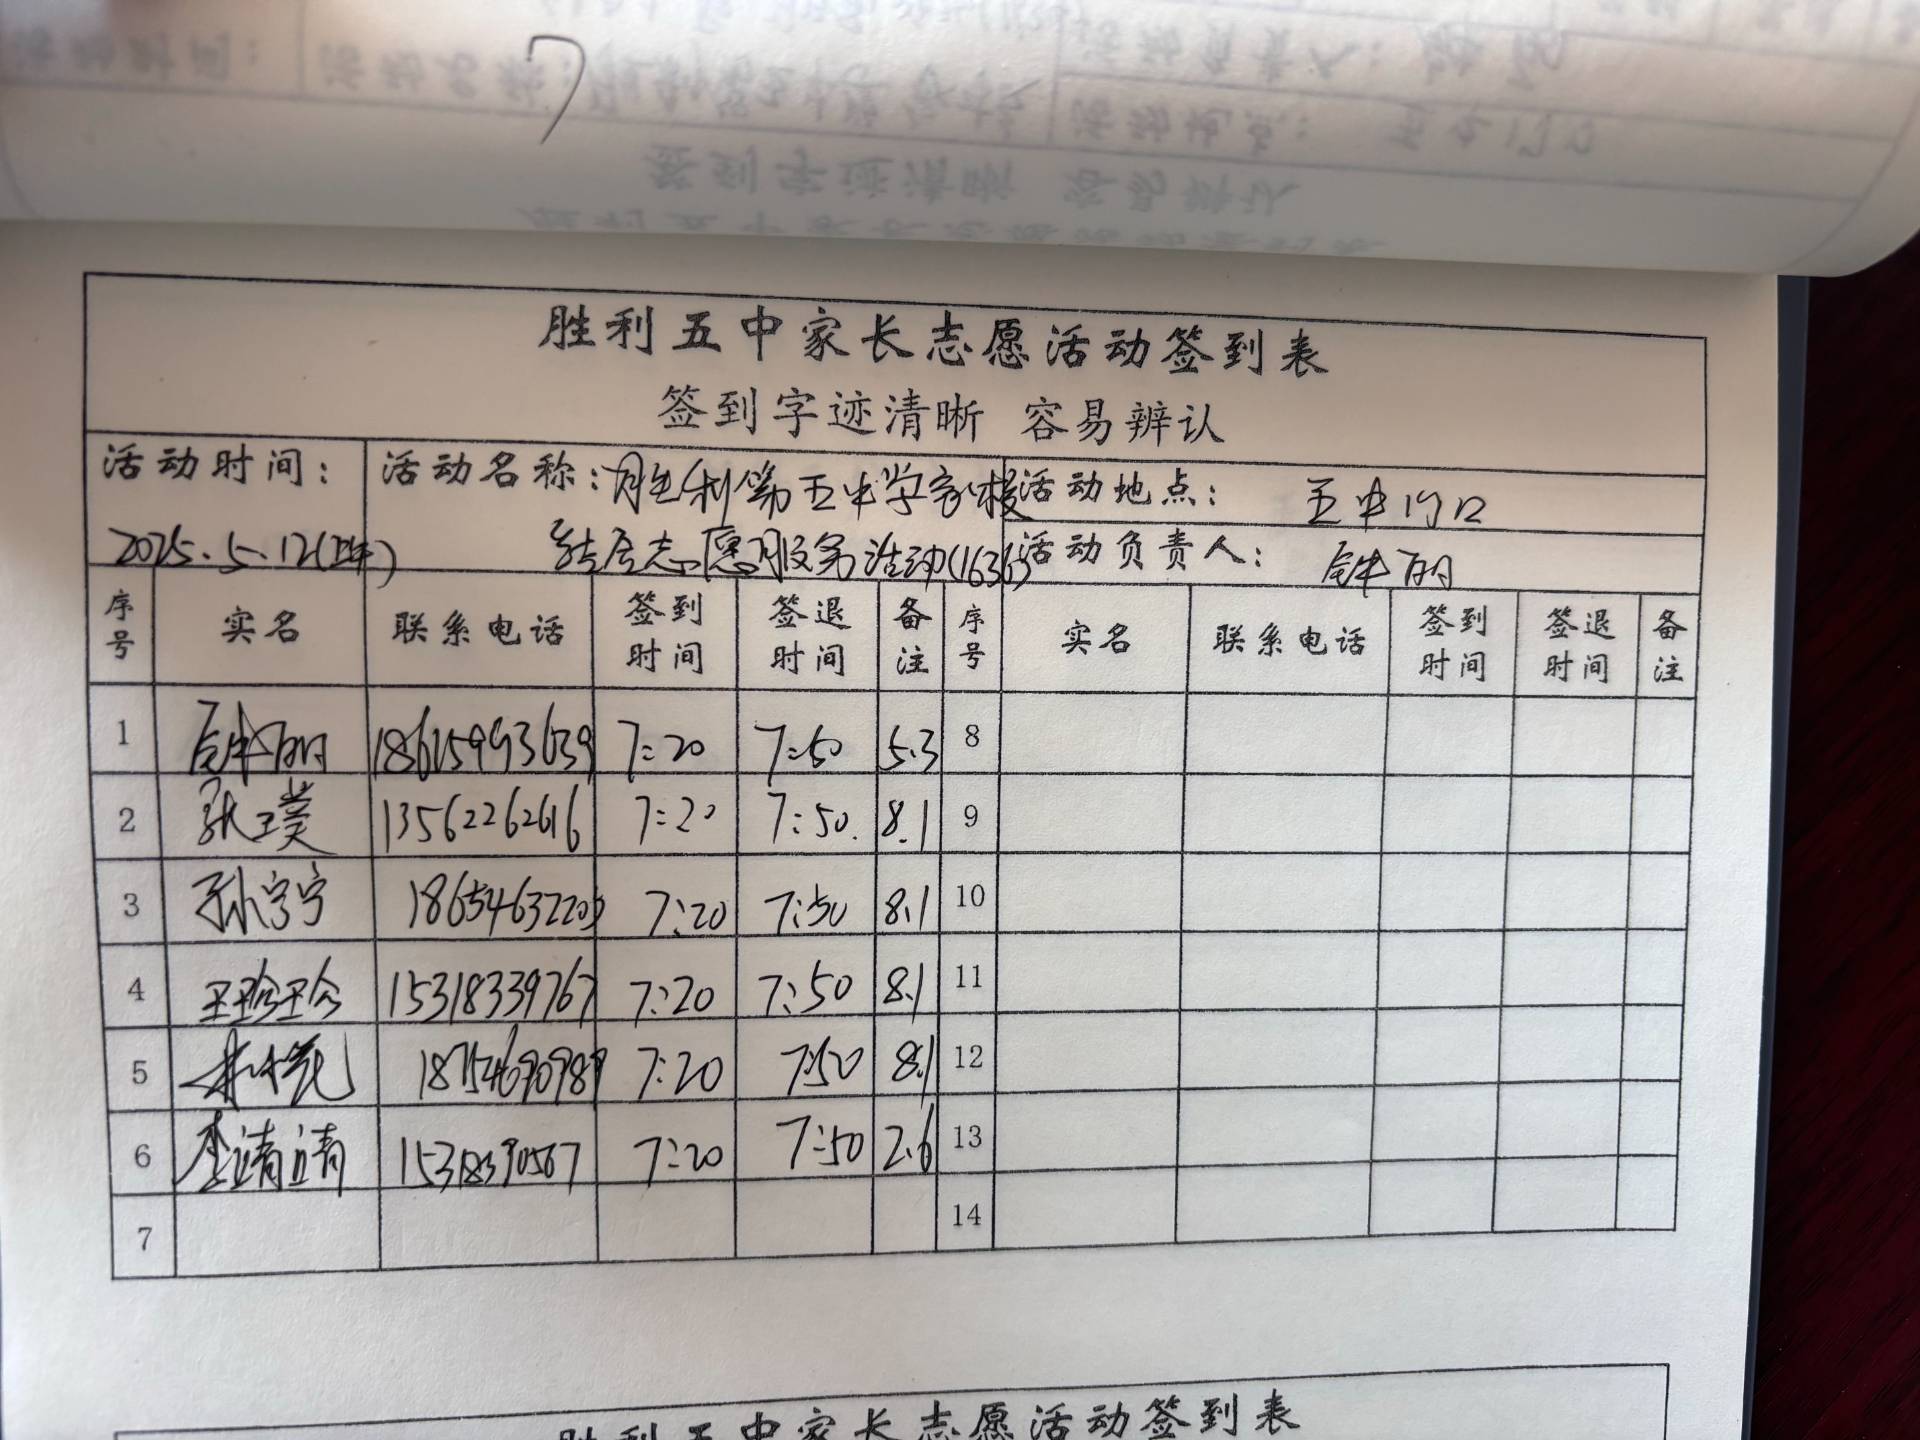 7
胜利五中家长志愿活动签到表
签到字迹清晰 容易辨认
活动时间: 活动名称:胜利第五中学家校 活动地点: 五中门口
2025.5.12( 志愿服务活动(1636) 活动负责人: 丽
序号 实名 联系电话 签到时间 签退时间 备注 序号 实名 联系电话 签到时间 签退时间 备注
1 丽 18615993639 7:20 7:50 5.3 8
2 张璞 13562262616 7:20 7:50. 8.1 9
3 孙宁宁 18654632205 7:20 7:50 8.1 10
4 王珍珍 15318339767 7:20 7:50 8.1 11
5 18754690989 7:20 7:50 8.1 12
6 李靖靖 15318390567 7:20 7:50 2.6 13
7 14
胜利五中家长志愿活动签到表